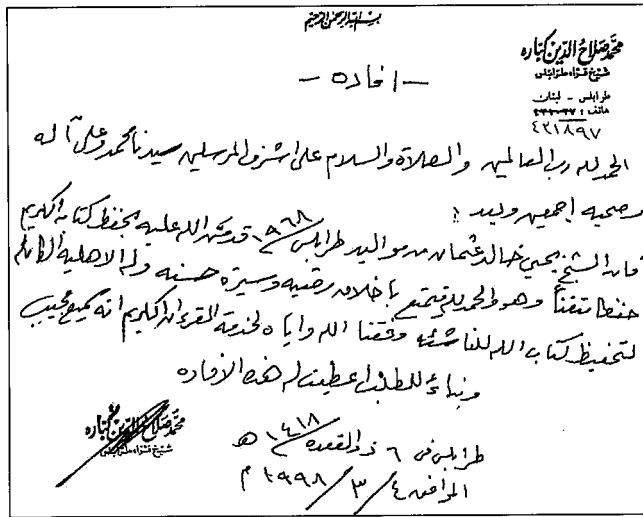 بسم الله الرحمن الرحيم
محمد صلاح الدين كبارة
شيخ قراء طرابلس
طرابلس - لبنان
هاتف :
٤٢١٨٩٧
- افاده -
الحمد لله رب العالمين والصلاة والسلام على اشرف المرسلين سيدنا محمد وعلى آله
وصحبه اجمعين وبعد :
فان الشيخ يحيى خالد عثمان من مواليد طرابلس ١٩٦٨ قد منّ الله عليه بحفظ كتابه الكريم
حفظا متقناً وهو والحمد لله يتمتع باخلاق رضيه وسيرة حسنه وله الاهلية الكاملة
لتحفيظ كتاب الله للناشئه وفقنا الله واياه لخدمة القرءان الكريم انه سميع مجيب
وبناءً للطلب اعطيت له هذه الافاده
طرابلس في ٦ ذو القعده ١٤١٨ هـ
الموافق ٤ / ٣ / ١٩٩٨ م
محمد صلاح الدين كبارة
شيخ قراء طرابلس